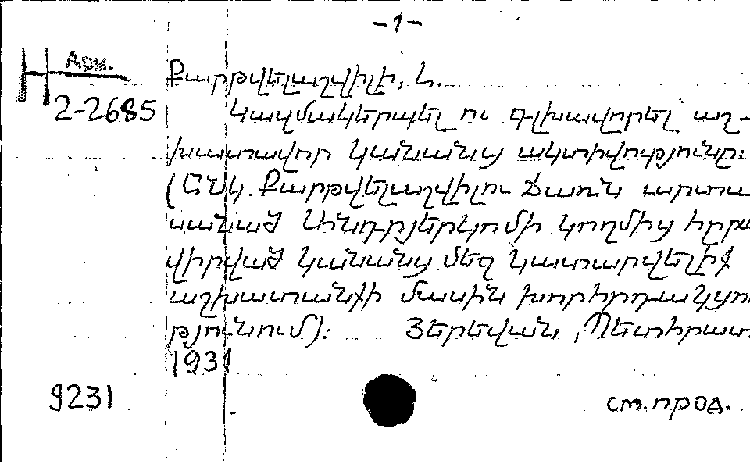 -1-
Арм.
Քարթվելաշվիլի, Ն.
2-2685 Կազմակերպել ու գլխավորել աշ-
խատավոր կանանց ակտիվությունը:
(Ընկ. Քարթվելաշվիլու ճառն արտա
սանած կողմից հրա
վիրված կանանց մեջ կատարվելիք
աշխատանքի մասին խորհրդակցու
թյունում): Յերեվան, Պետհրատ
1931
9231 см. прод.